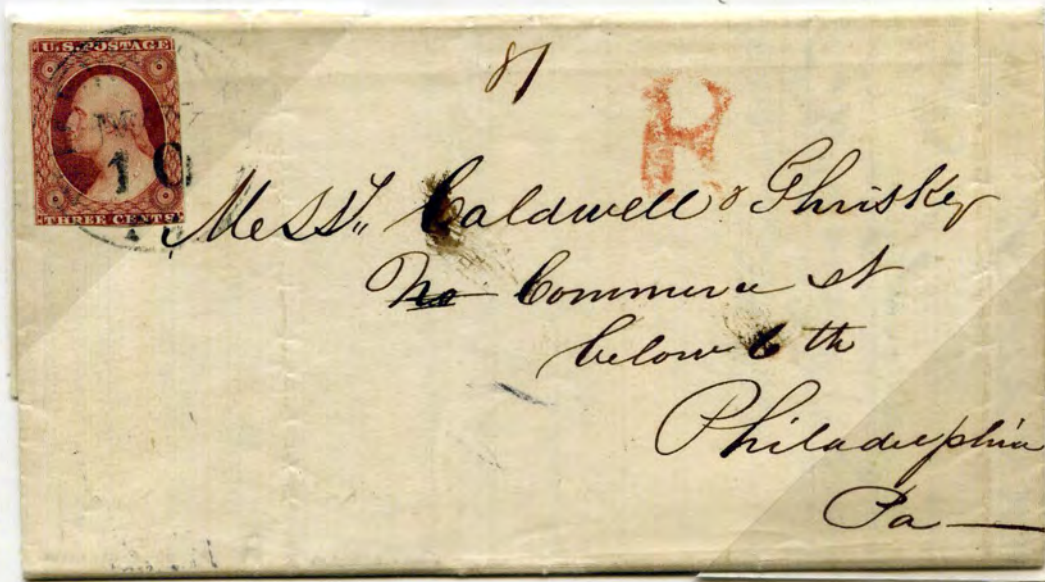 U.S. POSTAGE
10
THREE CENTS
R
Messrs. Caldwell & Ghriskey
No Commerce st
below 6 th
Philadelphia
Pa